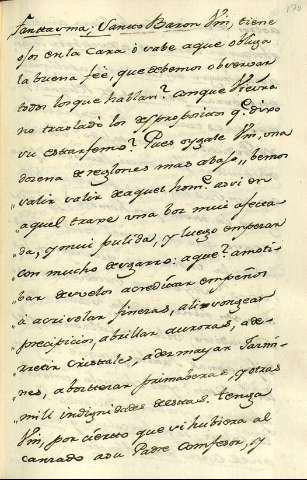 fantasma; Santo Baron Vm, tiene
ojos en la Cara ò sabe aque obliga
la buena feè, que debemos observar
todos los que hablan? Conque
no traslado los desproposìtos qe. dixo
su estarfermo? Pues oygale Vm, una
dozena de reglones mas abajo,, hemos
,, salir de aquel home. asi en
aquel traxe una boz mui afecta
da, y mui pulida, y luego empezar
con mucho desgarro: aque? amoti
,, bar desvelos acreditar empeños
,, à acrisolar finezas, alisongear
,, precipicios, abrillar auroras, a de-
,, rretir cristales, adesmayar Jazmi
,, nes, a bostezar primaberas, y otras
,, mill indignidades de estas. tenga
Vm, por cierto que si hubiera al
canzado a su Padre Confesor, y